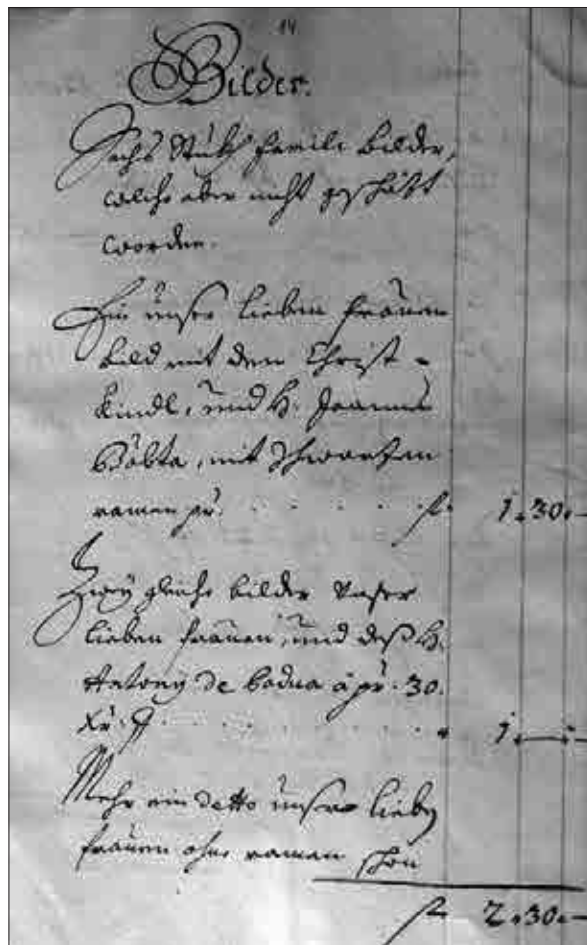 14
Bilder.
Sechs Stukh familie bilder,
welche aber nicht geschäzt
worden.
Ein unser lieben frauen
bild mit dem Christ-
kindl, und H: Joannes
mit schwarzen
ramen pr. . . . . . f. 1. 30. –
Zwey gleiche bilder unser
lieben frauen, und deß H:
Antony de Padua à pr. 30.
Xr. . . . . . . . " 1. – " –
Mehr ein detto unser lieben
frauen ohne ramen
f. 2. 30. –